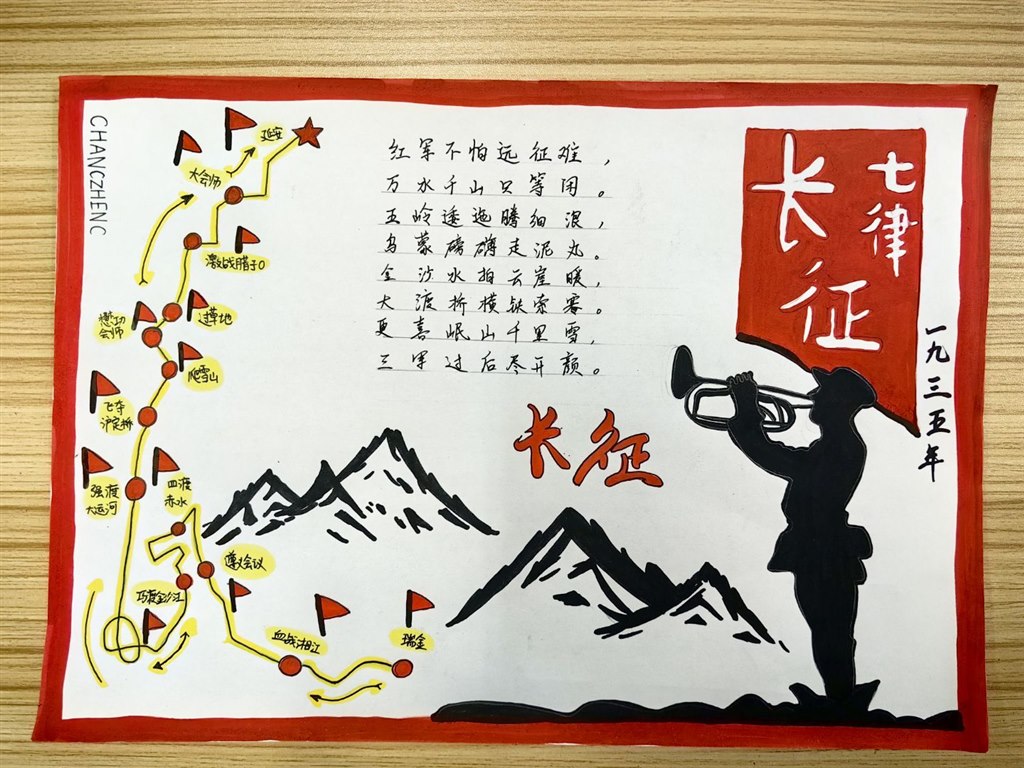 CHANGZHENG
红军不怕远征难，
万水千山只等闲。
五岭逶迤腾细浪，
乌蒙磅礴走泥丸。
金沙水拍云崖暖，
大渡桥横铁索寒。
更喜岷山千里雪，
三军过后尽开颜。
七律
长征
一九三五年
长征
延安
大会师
激战腊子口
过草地
懋功
会师
爬雪山
飞夺
泸定桥
强渡
大运河
四渡
赤水
遵义会议
巧渡金沙江
血战湘江
瑞金